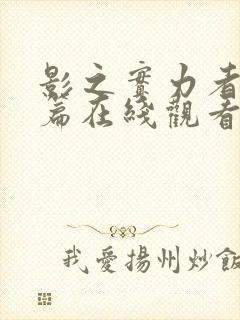 影之實力者
篇在綫觀看
我愛揚州炒飯